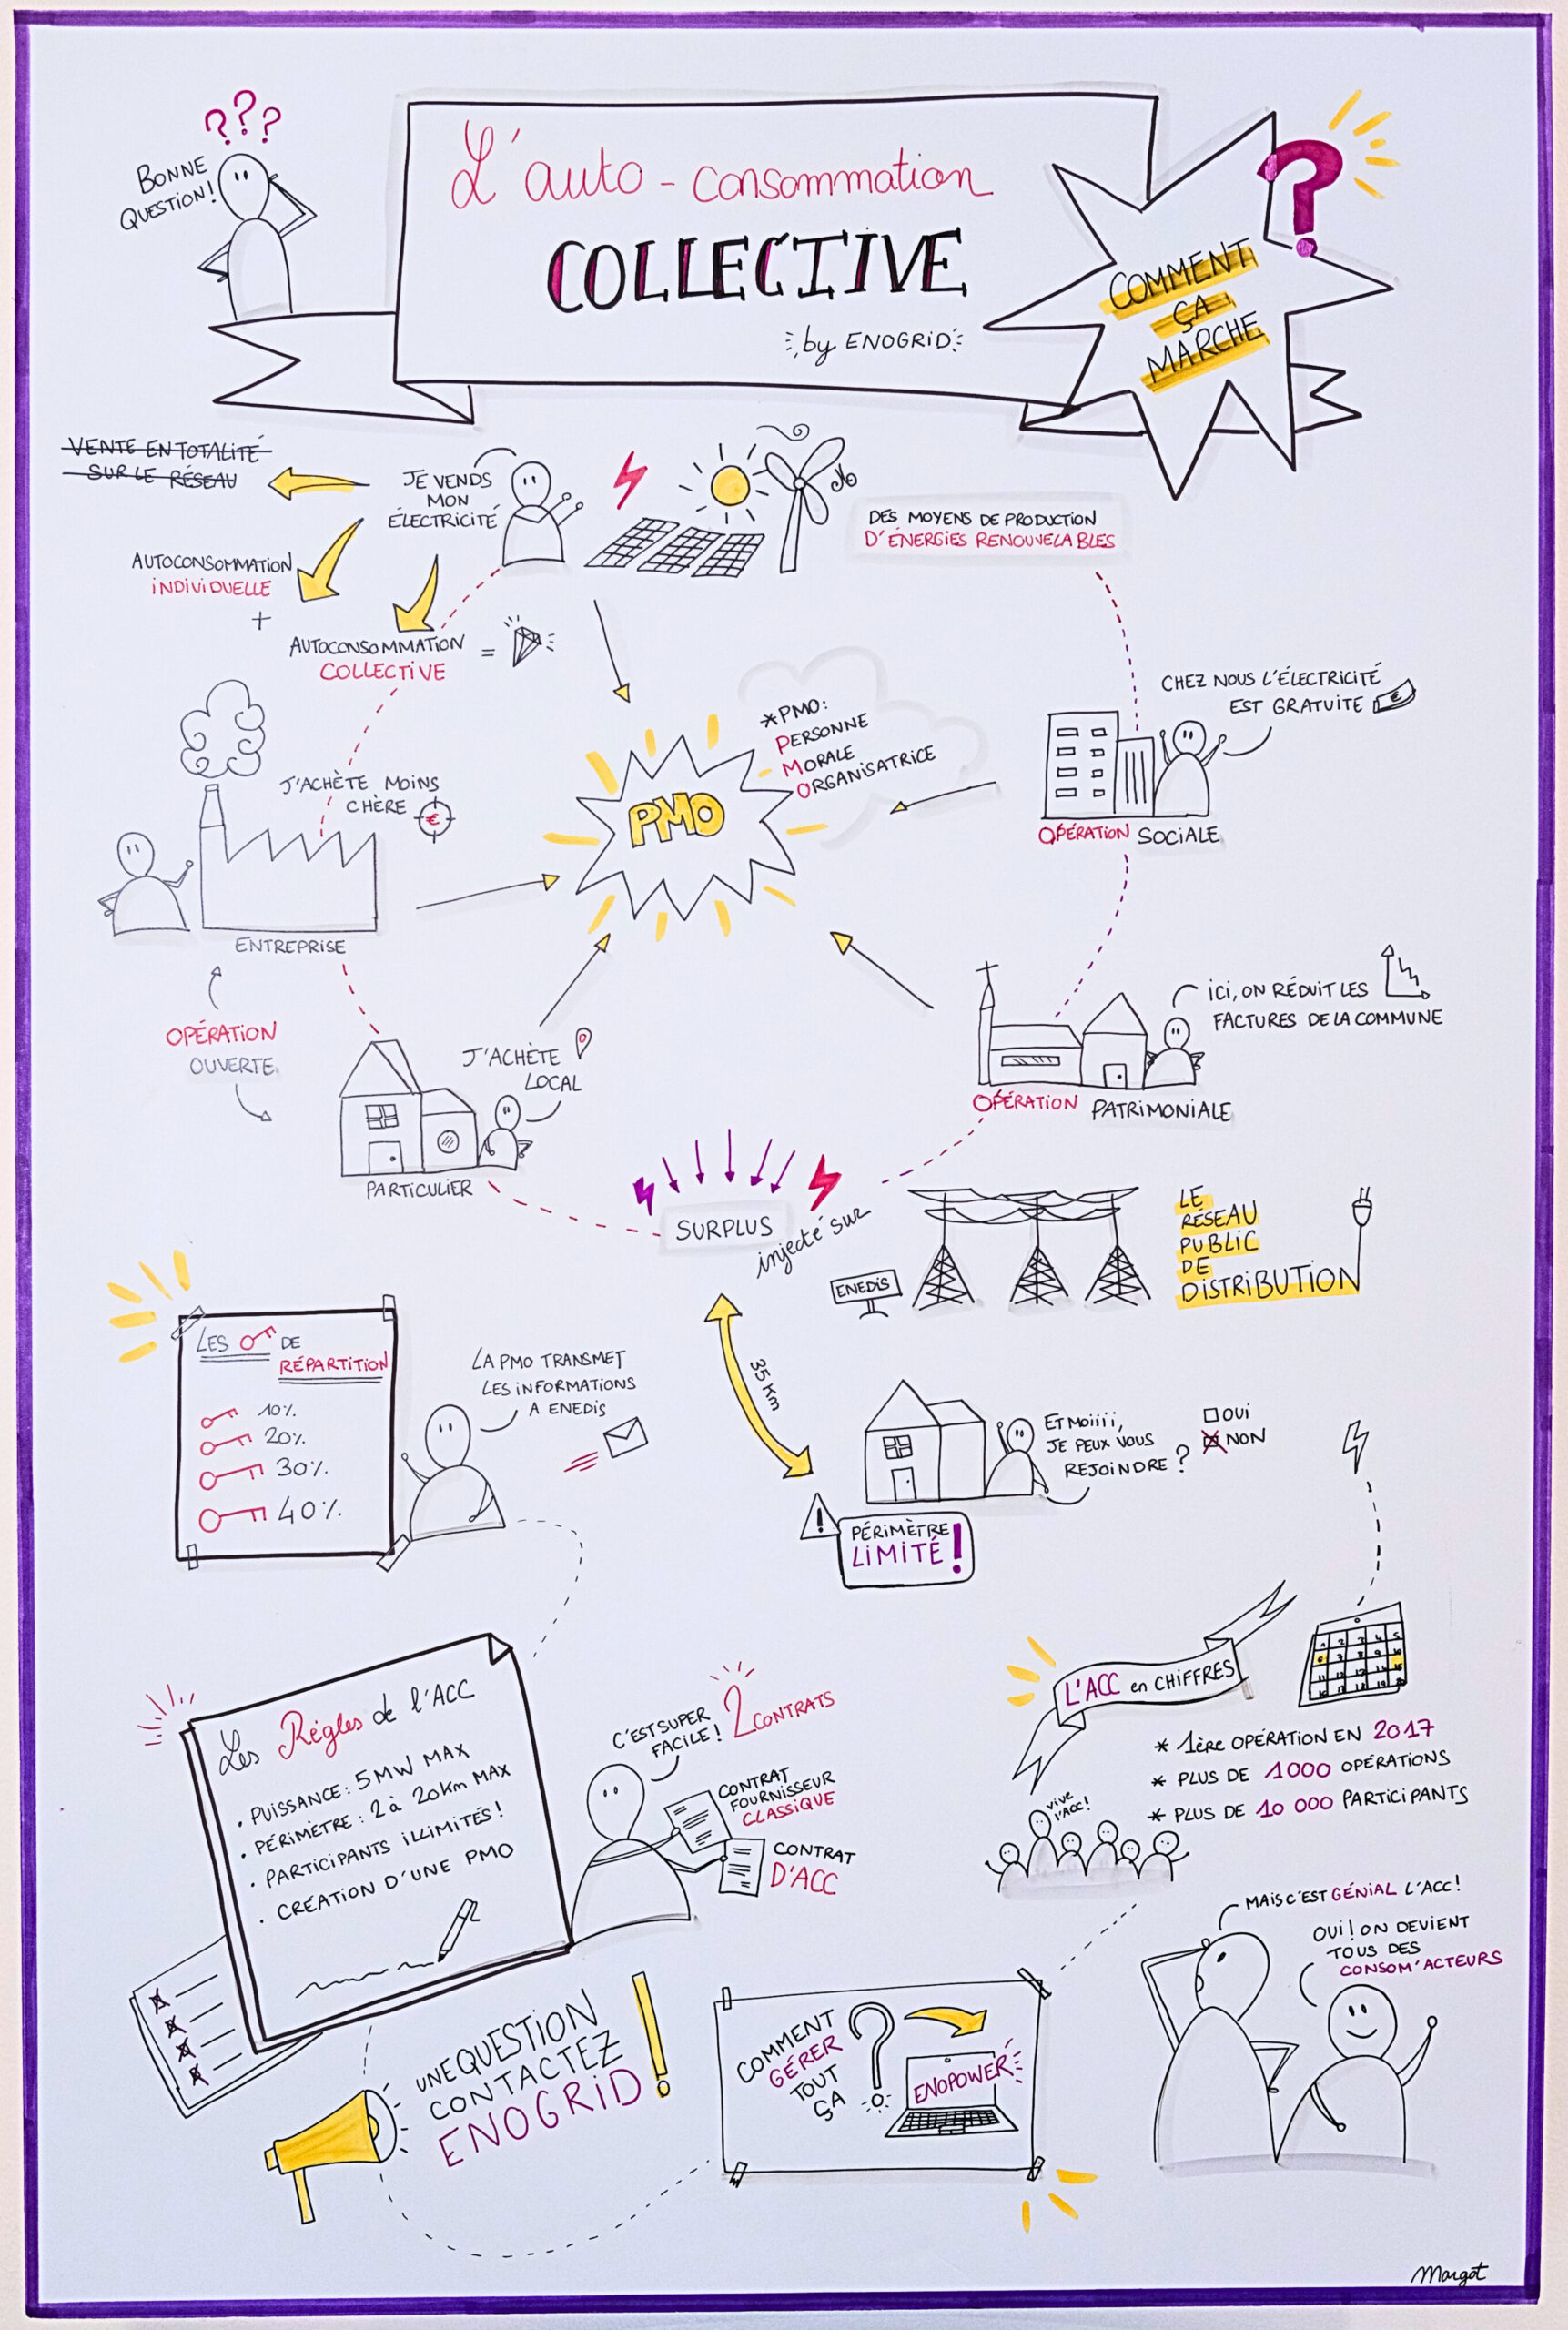 ???
BONNE
QUESTION!
L'auto-consommation
COLLECTIVE
by ENOGRiD
?
COMMENT
ÇA
MARCHE
VENTE EN TOTALITÉ
SUR LE RÉSEAU
JE VENDS
MON
ÉLECTRICITÉ
DES MOYENS DE PRODUCTION
D'ÉNERGIES RENOUVELABLES
AUTOCONSOMMATION
iNDiViDUELLE
+
AUTOCONSOMMATION =
COLLECTiVE
CHEZ NOUS L'ÉLECTRICITÉ
EST GRATUITE €
*PMO:
PERSONNE
MORALE
ORGANiSATRiCE
J'ACHÈTE MOINS
CHÈRE €
PMO
OPÉRATION SOCiALE
ENTREPRISE
ici, ON RÉDUIT LES
FACTURES DE LA COMMUNE
OPÉRATION
OUVERTE
J'ACHÈTE
LOCAL
OPÉRATION PATRiMONiALE
PARTiCULiER
SURPLUS
injecté sur
ENEDiS
LE
RÉSEAU
PUBLiC
DE
DiSTRiBUTiON
LES DE
RÉPARTITION
10%
20%
30%
40%
LA PMO TRANSMET
LES iNFORMATIONS
A ENEDiS
35 Km
ET Moiiii,
JE PEUX VOUS
REJOiNDRE ?
OUi
NON
!
PÉRiMÈTRE
LiMiTÉ !
Les Règles de l'ACC
. PUiSSANCE : 5 MW MAX
. PÉRiMÈTRE : 2 à 20 Km MAX
. PARTiCiPANTS iLLiMiTÉS !
. CRÉATiON D'UNE PMO
C'EST SUPER
FACiLE !
2 CONTRATS
CONTRAT
FOURNISSEUR
CLASSiQUE
CONTRAT
D'ACC
L'ACC en CHiFFRES
* 1ère OPÉRATION EN 2017
* PLUS DE 1000 OPÉRATIONS
* PLUS DE 10 000 PARTiCiPANTS
ViVE
l'ACC!
MAiS C'EST GÉNiAL L'ACC!
OUi! ON DEViENT
TOUS DES
CONSOM'ACTEURS
UNE QUESTiON
CONTACTEZ
ENOGRiD !
COMMENT
GÉRER
TOUT
ÇA
?
ENOPOWER
Margot